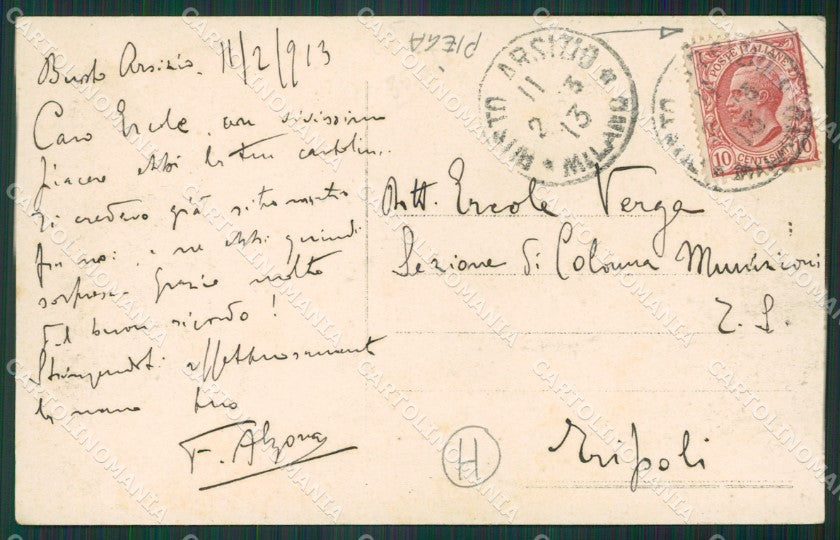 Busto Arsizio, 11/2/913
Caro Ercole, con vivissimo
piacere ebbi la tua cartolin..
Ti credevo già ritornato
fra noi, e ne ebbi quindi
sorpresa. Grazie molto
del buon ricordo!
Stringendoti affettuosamente
la mano tuo
F. Alzona
PIEGA
BUSTO ARSIZIO * MILANO *
11
2
13
POSTE ITALIANE
10 CENTESIMI 10
Dott. Ercole Verga
Sezione di Colonna Munizioni
T. S.
Tripoli
H
CARTOLINOMANIA